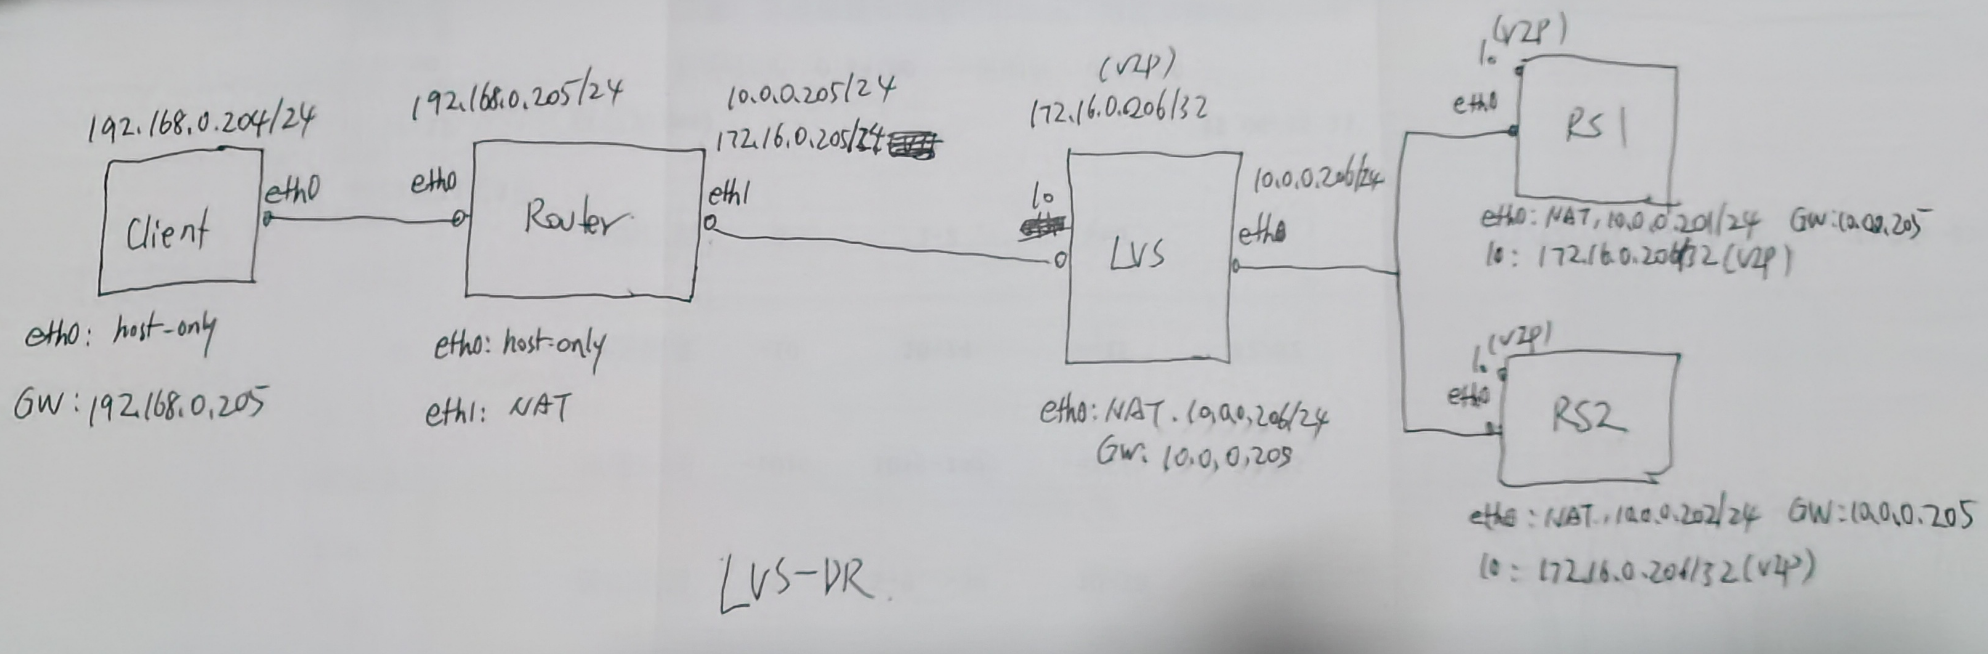 192.168.0.204/24
Client
eth0
eth0: host-only
GW: 192.168.0.205
192.168.0.205/24
eth0
Router
eth0: host-only
eth1: NAT
10.0.0.205/24
172.16.0.205/24
eth1
(VIP)
172.16.0.206/32
lo
LVS
10.0.0.206/24
eth0
eth0: NAT. 10.0.0.206/24
GW: 10.0.0.205
(VIP)
lo
eth0
RS1
eth0: NAT, 10.0.0.201/24 GW: 10.0.0.205
lo: 172.16.0.206/32 (VIP)
(VIP)
lo
eth0
RS2
eth0: NAT, 10.0.0.202/24 GW: 10.0.0.205
lo: 172.16.0.206/32 (VIP)
LVS-DR